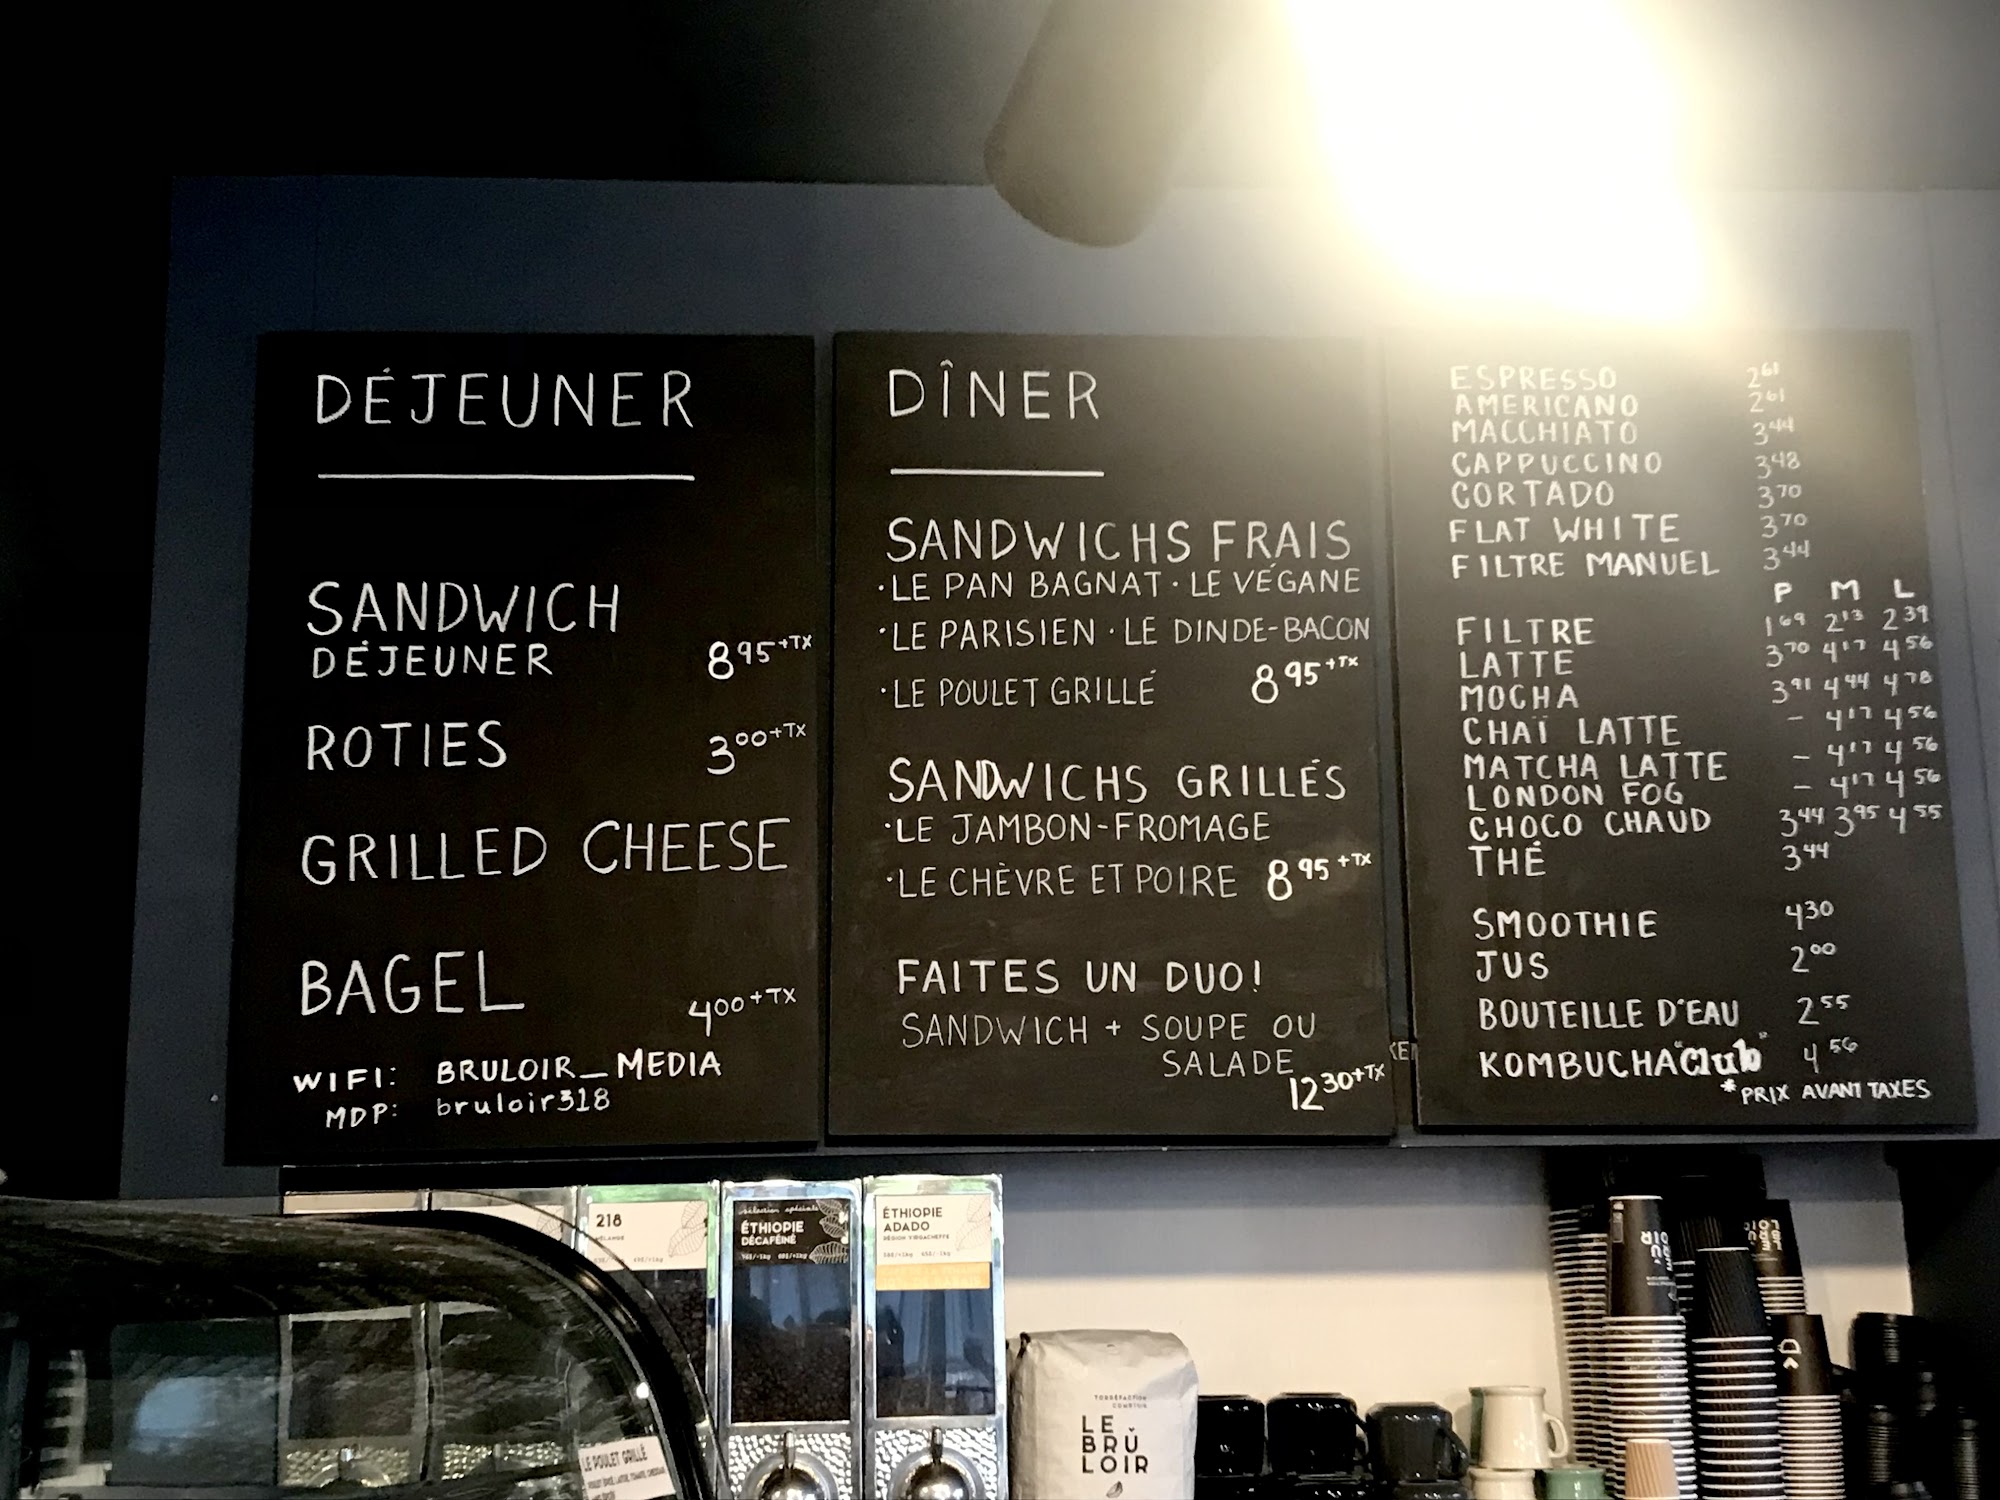 DÉJEUNER
SANDWICH
DÉJEUNER 8⁹⁵+TX
ROTIES 3⁰⁰+TX
GRILLED CHEESE
BAGEL 4⁰⁰+TX
WIFI: BRULOIR_MEDIA
MDP: bruloir318
DÎNER
SANDWICHS FRAIS
·LE PAN BAGNAT·LE VÉGANE
·LE PARISIEN·LE DINDE-BACON
·LE POULET GRILLÉ 8⁹⁵+TX
SANDWICHS GRILLÉS
·LE JAMBON-FROMAGE
·LE CHÈVRE ET POIRE 8⁹⁵+TX
FAITES UN DUO!
SANDWICH + SOUPE OU
SALADE
12³⁰+TX
ESPRESSO 2⁶¹
AMERICANO 2⁶¹
MACCHIATO 3⁴⁴
CAPPUCCINO 3⁴⁸
CORTADO 3⁷⁰
FLAT WHITE 3⁷⁰
FILTRE MANUEL 3⁴⁴
P M L
FILTRE 1⁶⁹ 2¹³ 2³⁹
LATTE 3⁷⁰ 4¹⁷ 4⁵⁶
MOCHA 3⁹¹ 4⁴⁴ 4⁷⁸
CHAÏ LATTE – 4¹⁷ 4⁵⁶
MATCHA LATTE – 4¹⁷ 4⁵⁶
LONDON FOG – 4¹⁷ 4⁵⁶
CHOCO CHAUD 3⁴⁴ 3⁹⁵ 4⁵⁵
THÉ 3⁴⁴
SMOOTHIE 4³⁰
JUS 2⁰⁰
BOUTEILLE D'EAU 2⁵⁵
KOMBUCHA "Club" 4⁵⁶
*PRIX AVANT TAXES
218
MÉLANGE
sélection spéciale
ÉTHIOPIE
DÉCAFÉINÉ
ÉTHIOPIE
ADADO
RÉGION YIRGACHEFFE
TORRÉFACTION
COMPTOIR
LE
BRÛ
LOIR
LE POULET GRILLÉ